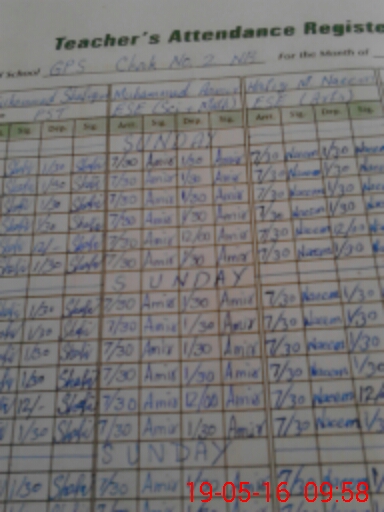 Teacher's Attendance Registe
School GPS Chak No 2 NB For the Month of
Muhammad Hafiz M Naeem
PST ESE (Sci, Math) ESE (Arts)
Sig. Dep. Sig. Arr. Sig. Dep. Sig. Arr. Sig. Dep. Sig.
SUNDAY
Shafi 1/30 Shafi 7/30 Amir 1/30 Amir 7/30 Naeem 1/30 Naeem
Shafi 1/30 Shafi 7/30 Amir 1/30 Amir 7/30 Naeem 1/30 Naeem
Shafi 1/30 Shafi 7/30 Amir 1/30 Amir 7/30 Naeem 1/30 Naeem
Shafi 1/30 Shafi 7/30 Amir 1/30 Amir 7/30 Naeem 1/30 Naeem
Shafi 12/- Shafi 7/30 Amir 12/00 Amir 7/30 Naeem 12/00 Naeem
Shafi 1/30 Shafi 7/30 Amir 1/30 Amir 7/30 Naeem 1/30 Naeem
SUNDAY
1/30 Shafi 7/30 Amir 1/30 Amir 7/30 Naeem 1/30
1/30 Shafi 7/30 Amir 1/30 Amir 7/30 Naeem 1/30
1/30 Shafi 7/30 Amir 1/30 Amir 7/30 Naeem 1/30
1/30 Shafi 7/30 Amir 1/30 Amir 7/30 Naeem 1/30
12/- Shafi 7/30 Amir 12/00 Amir 7/30 Naeem 12/
1/30 Shafi 7/30 Amir 1/30 Amir 7/30 Naeem 1/3
SUNDAY
1/30 Shafi 7/30 Amir 1/30 7/30
19-05-16 09:58